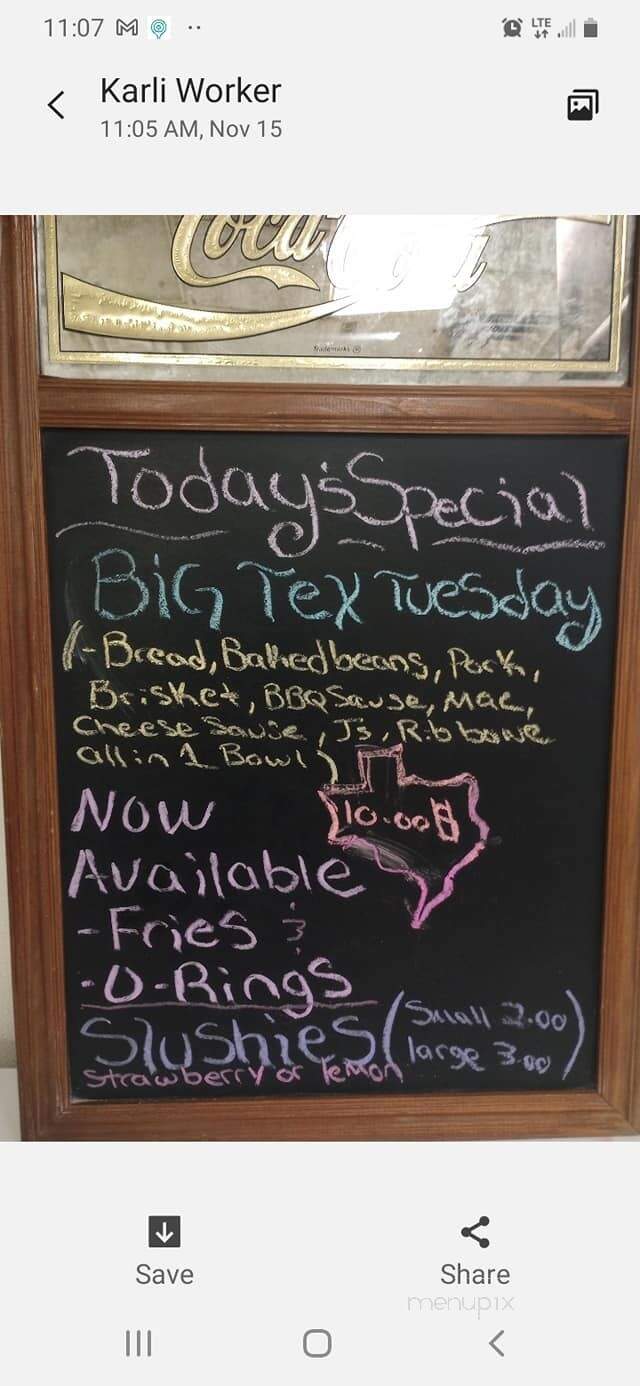 11:07
LTE
Karli Worker
11:05 AM, Nov 15
Coca-Cola
Trademarks ®
Today's Special
BiG Tex Tuesday
(-Bread, Baked beans, Pork,
Brisket, BBQ Sause, Mac,
Cheese Sause, Js, Rib bowe
all in 1 Bowl)
10.00$
Now
Available
-Fries &
-O-Rings
Slushies (Small 2.00
large 3.00)
Strawberry or lemon
Save
Share
menupix